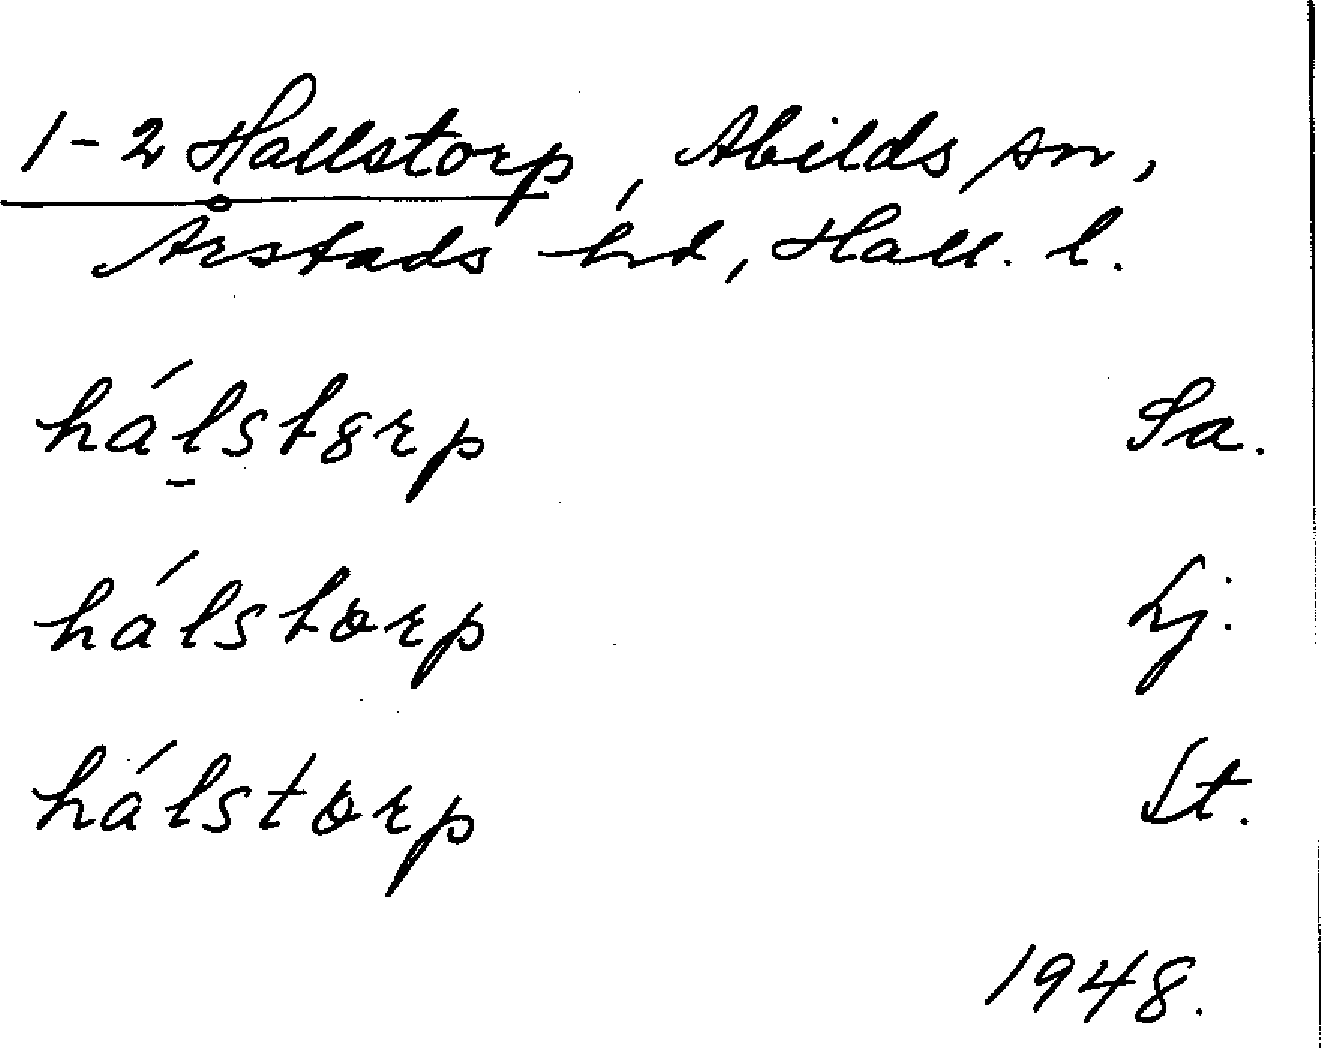 1-2 Hallstorp, Abilds sn,
Årstads hd, Hall. l.
hál̠stȣrp Sa.
hálstorp Lj.
hálstorp St.
1948.